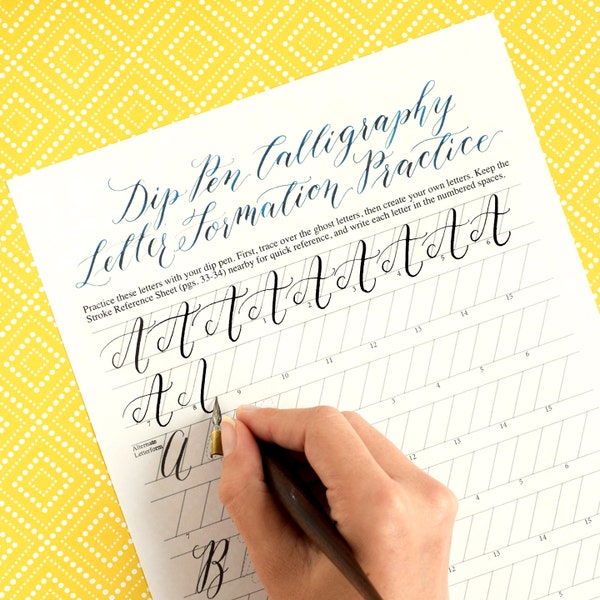 Dip Pen Calligraphy
Letter Formation Practice
Practice these letters with your dip pen. First, trace over the ghost letters, then create your own letters. Keep the
Stroke Reference Sheet (pgs. 33-34) nearby for quick reference, and write each letter in the numbered spaces.
A A A A A A A A A
1 2 3 4 5 6
A A
7 8 9 10 11 12 13 14 15
Alternate
Letterform
A
B